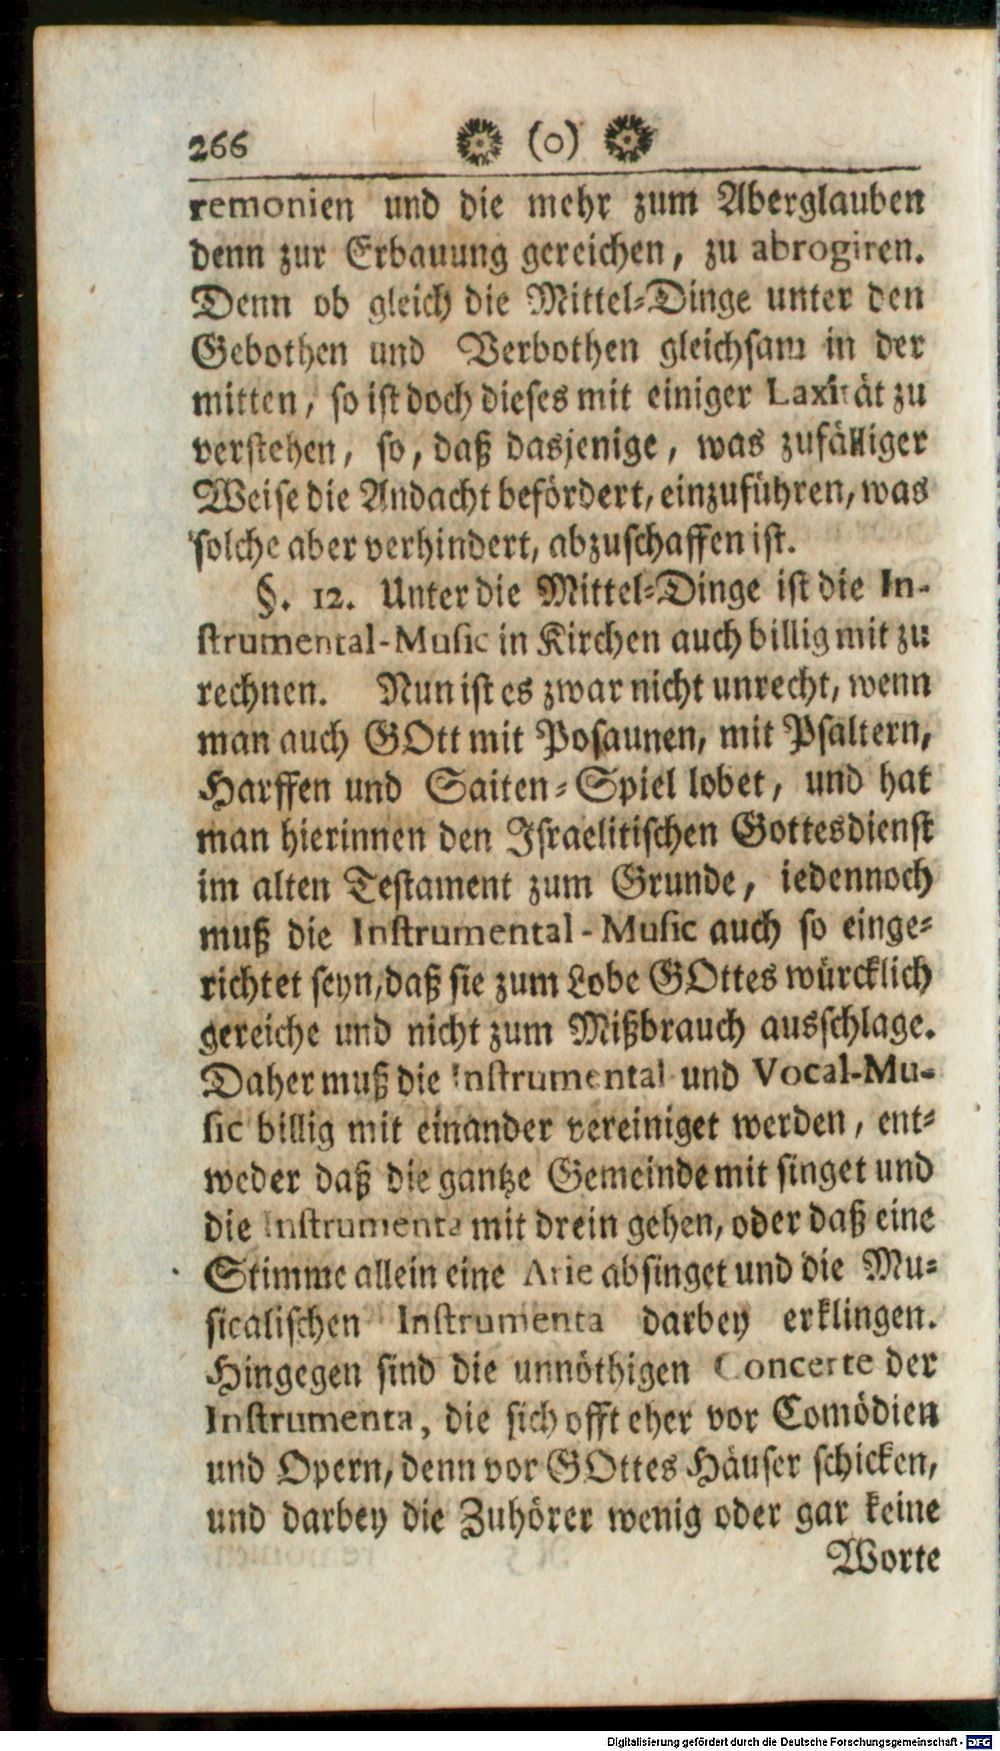 266 (o)
remonien und die mehr zum Aberglauben
denn zur Erbauung gereichen, zu abrogiren.
Denn ob gleich die Mittel-Dinge unter den
Gebothen und Verbothen gleichsam in der
mitten, so ist doch dieses mit einiger Laxität zu
verstehen, so, daß dasjenige, was zufälliger
Weise die Andacht befördert, einzuführen, was
solche aber verhindert, abzuschaffen ist.
§. 12. Unter die Mittel-Dinge ist die In-
strumental-Music in Kirchen auch billig mit zu
rechnen. Nun ist es zwar nicht unrecht, wenn
man auch GOtt mit Posaunen, mit Psaltern,
Harffen und Saiten-Spiel lobet, und hat
man hierinnen den Israelitischen Gottesdienst
im alten Testament zum Grunde, iedennoch
muß die Instrumental-Music auch so einge-
richtet seyn, daß sie zum Lobe GOttes würcklich
gereiche und nicht zum Mißbrauch ausschlage.
Daher muß die Instrumental und Vocal-Mu-
sic billig mit einander vereiniget werden, ent-
weder daß die gantze Gemeinde mit singet und
die Instrumenta mit drein gehen, oder daß eine
Stimme allein eine Arie absinget und die Mu-
sicalischen Instrumenta darbey erklingen.
Hingegen sind die unnöthigen Concerte der
Instrumenta, die sich offt eher vor Comödien
und Opern, denn vor GOttes Häuser schicken,
und darbey die Zuhörer wenig oder gar keine
Worte
Digitalisierung gefördert durch die Deutsche Forschungsgemeinschaft - DFG